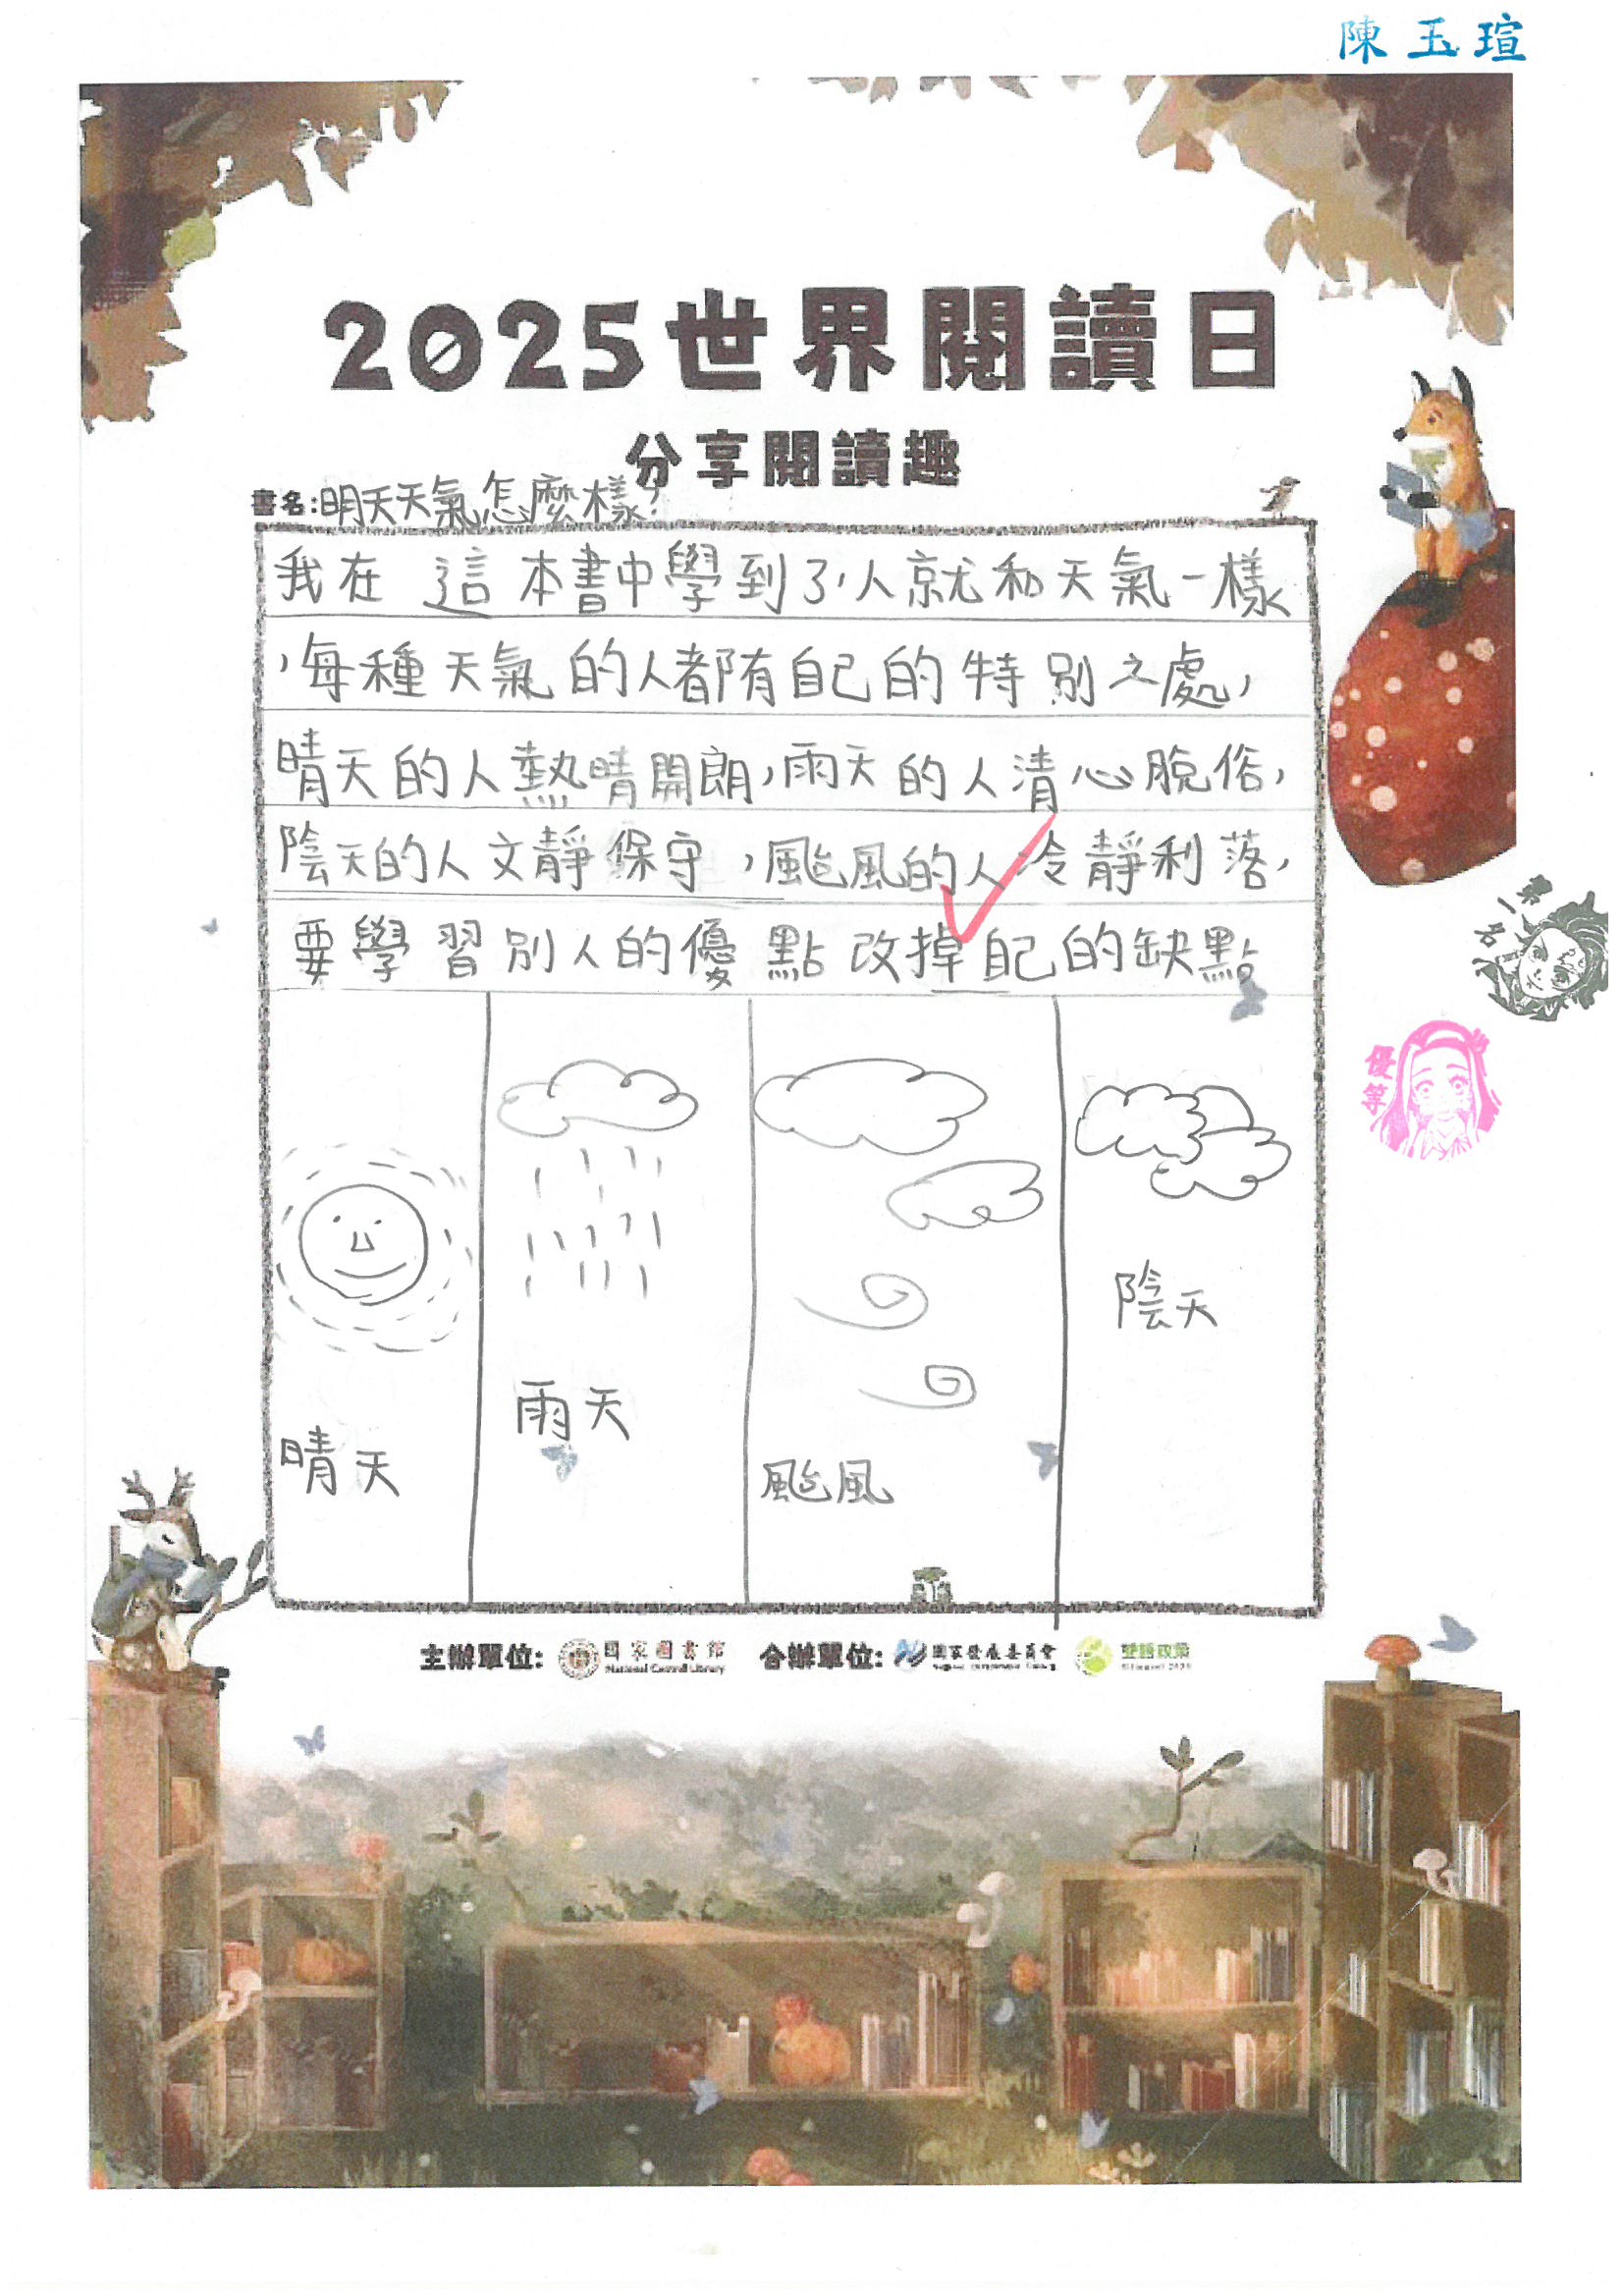 陳玉瑄
2025世界閱讀日
分享閱讀趣
書名:明天天氣怎麼樣?
我在這本書中學到了,人就和天氣一樣
,每種天氣的人都有自己的特別之處,
晴天的人熱晴開朗,雨天的人清心脫俗,
陰天的人文靜保守,颱風的人冷靜利落,
要學習別人的優點改掉自己的缺點
第一名
優等
陰天
雨天
晴天
颱風
主辦單位: 國家圖書館 合辦單位: 國家發展委員會 雙語政策
National Central Library